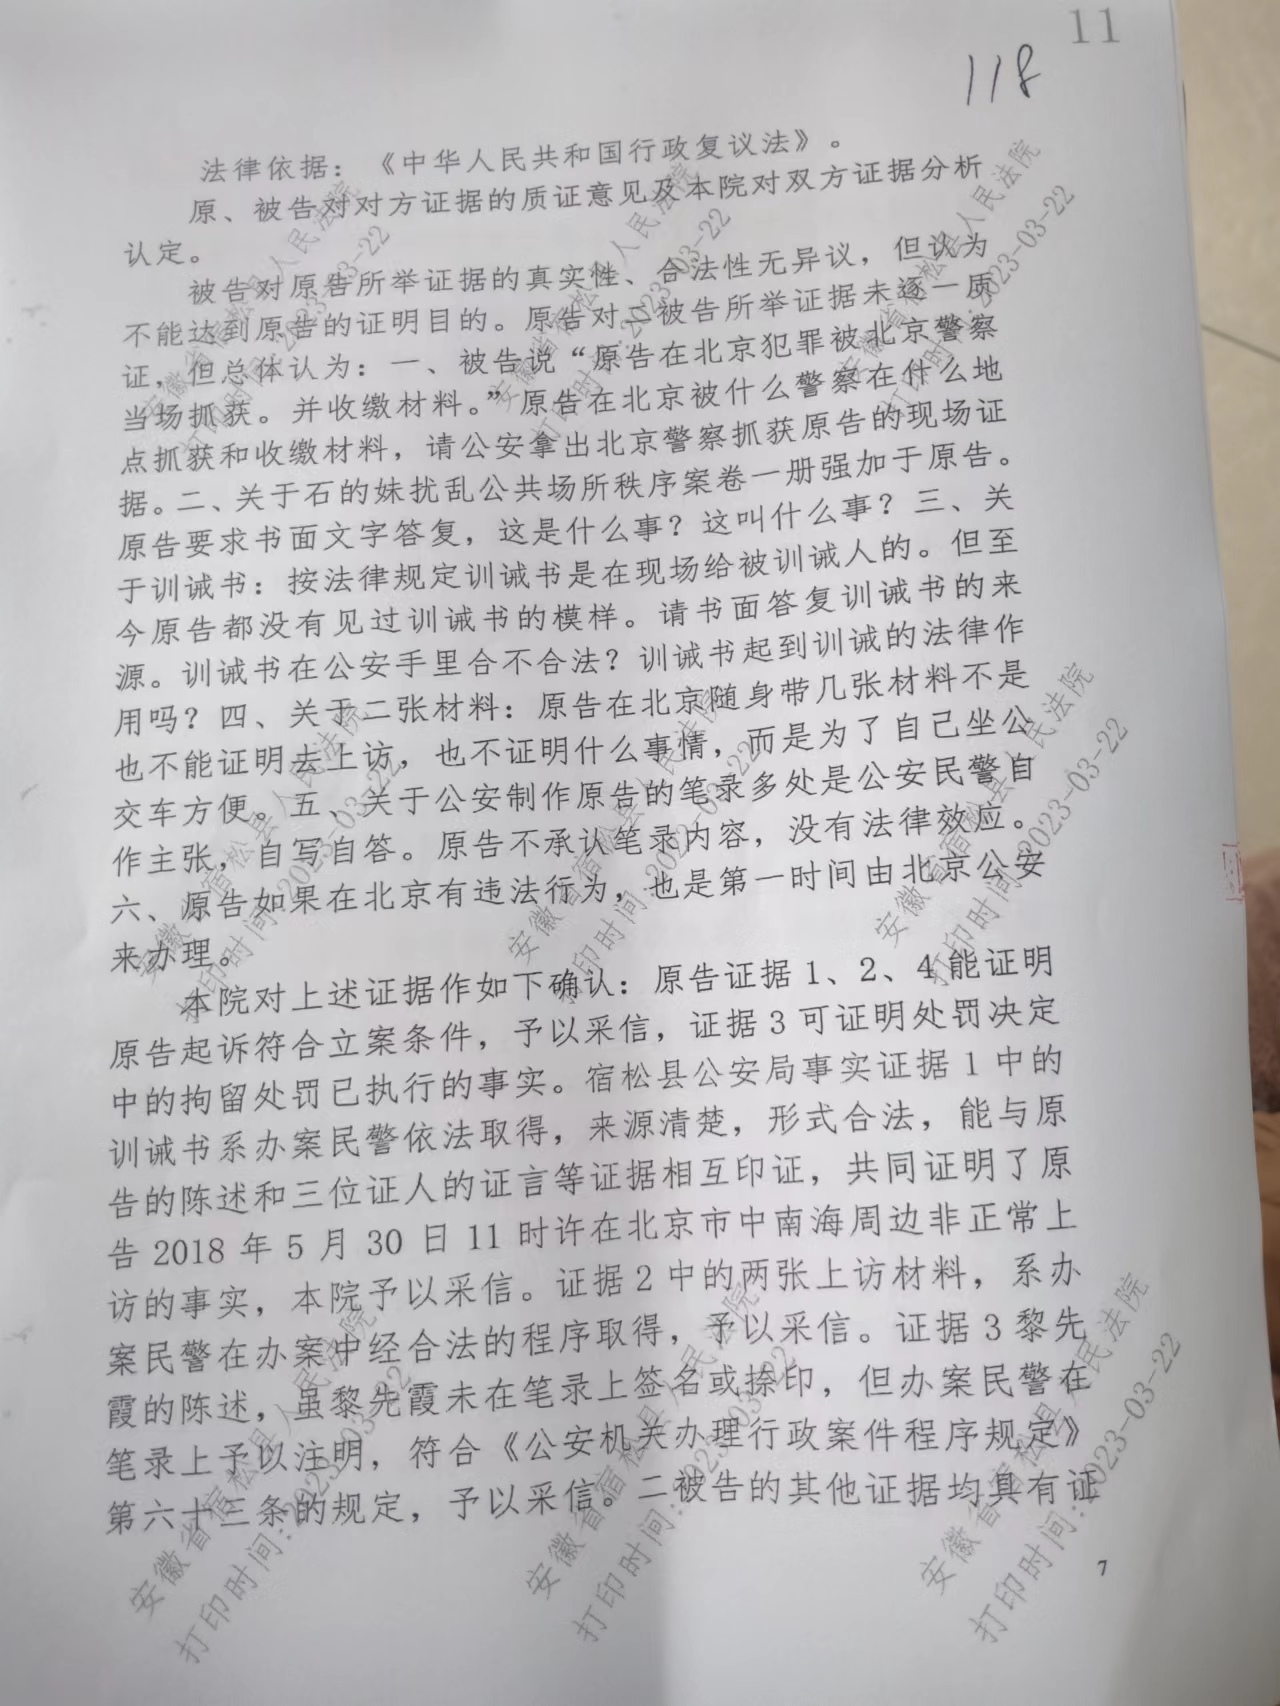 11
118
法律依据：《中华人民共和国行政复议法》。
原、被告对对方证据的质证意见及本院对双方证据分析
认定。
被告对原告所举证据的真实性、合法性无异议，但认为
不能达到原告的证明目的。原告对二被告所举证据未逐一质
证，但总体认为：一、被告说“原告在北京犯罪被北京警察
当场抓获。并收缴材料。”原告在北京被什么警察在什么地
点抓获和收缴材料，请公安拿出北京警察抓获原告的现场证
据。二、关于石的妹扰乱公共场所秩序案卷一册强加于原告。
原告要求书面文字答复，这是什么事？这叫什么事？三、关
于训诫书：按法律规定训诫书是在现场给被训诫人的。但至
今原告都没有见过训诫书的模样。请书面答复训诫书的来
源。训诫书在公安手里合不合法？训诫书起到训诫的法律作
用吗？四、关于二张材料：原告在北京随身带几张材料不是
也不能证明去上访，也不证明什么事情，而是为了自己坐公
交车方便。五、关于公安制作原告的笔录多处是公安民警自
作主张，自写自答。原告不承认笔录内容，没有法律效应。
六、原告如果在北京有违法行为，也是第一时间由北京公安
来办理。
本院对上述证据作如下确认：原告证据1、2、4能证明
原告起诉符合立案条件，予以采信，证据3可证明处罚决定
中的拘留处罚已执行的事实。宿松县公安局事实证据1中的
训诫书系办案民警依法取得，来源清楚，形式合法，能与原
告的陈述和三位证人的证言等证据相互印证，共同证明了原
告2018年5月30日11时许在北京市中南海周边非正常上
访的事实，本院予以采信。证据2中的两张上访材料，系办
案民警在办案中经合法的程序取得，予以采信。证据3黎先
霞的陈述，虽黎先霞未在笔录上签名或捺印，但办案民警在
笔录上予以注明，符合《公安机关办理行政案件程序规定》
第六十三条的规定，予以采信。二被告的其他证据均具有证
7
安徽省宿松县人民法院
打印时间：2023-03-22
安徽省宿松县人民法院
打印时间：2023-03-22
安徽省宿松县人民法院
打印时间：2023-03-22
安徽省宿松县人民法院
打印时间：2023-03-22
安徽省宿松县人民法院
打印时间：2023-03-22
安徽省宿松县人民法院
打印时间：2023-03-22
安徽省宿松县人民法院
打印时间：2023-03-22
安徽省宿松县人民法院
打印时间：2023-03-22
安徽省宿松县人民法院
打印时间：2023-03-22